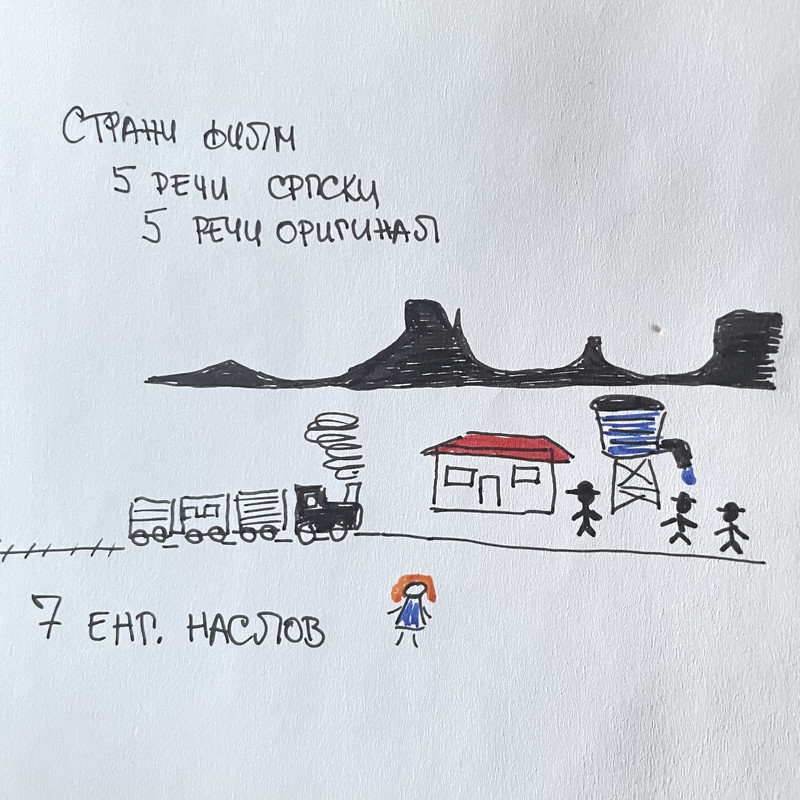 СТРАНИ ФИЛМ
5 РЕЧИ СРПСКИ
5 РЕЧИ ОРИГИНАЛ
7 ЕНГ. НАСЛОВ